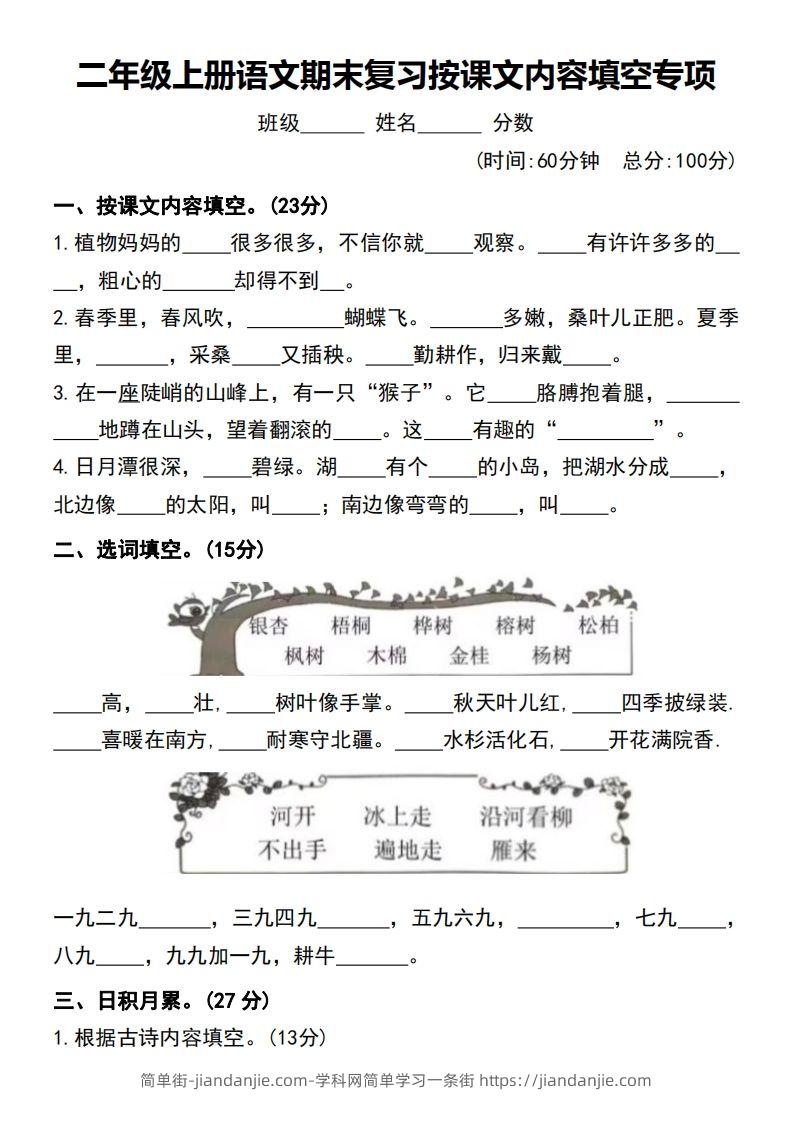 二年级上册语文期末复习按课文内容填空专项
班级______ 姓名______ 分数
(时间:60分钟 总分:100分)
一、按课文内容填空。(23分)
1.植物妈妈的____很多很多，不信你就____观察。____有许许多多的__
__，粗心的______却得不到__。
2.春季里，春风吹，________蝴蝶飞。______多嫩，桑叶儿正肥。夏季
里，______，采桑____又插秧。____勤耕作，归来戴____。
3.在一座陡峭的山峰上，有一只“猴子”。它____胳膊抱着腿，______
____地蹲在山头，望着翻滚的____。这____有趣的“________”。
4.日月潭很深，____碧绿。湖____有个____的小岛，把湖水分成____，
北边像____的太阳，叫____；南边像弯弯的____，叫____。
二、选词填空。(15分)
银杏 梧桐 桦树 榕树 松柏
枫树 木棉 金桂 杨树
____高，____壮,____树叶像手掌。____秋天叶儿红,____四季披绿装.
____喜暖在南方,____耐寒守北疆。____水杉活化石,____开花满院香.
河开 冰上走 沿河看柳
不出手 遍地走 雁来
一九二九______，三九四九______，五九六九，________，七九____，
八九____，九九加一九，耕牛______。
三、日积月累。(27 分)
1.根据古诗内容填空。(13分)
简单街-jiandanjie.com-学科网简单学习一条街 https://jiandanjie.com